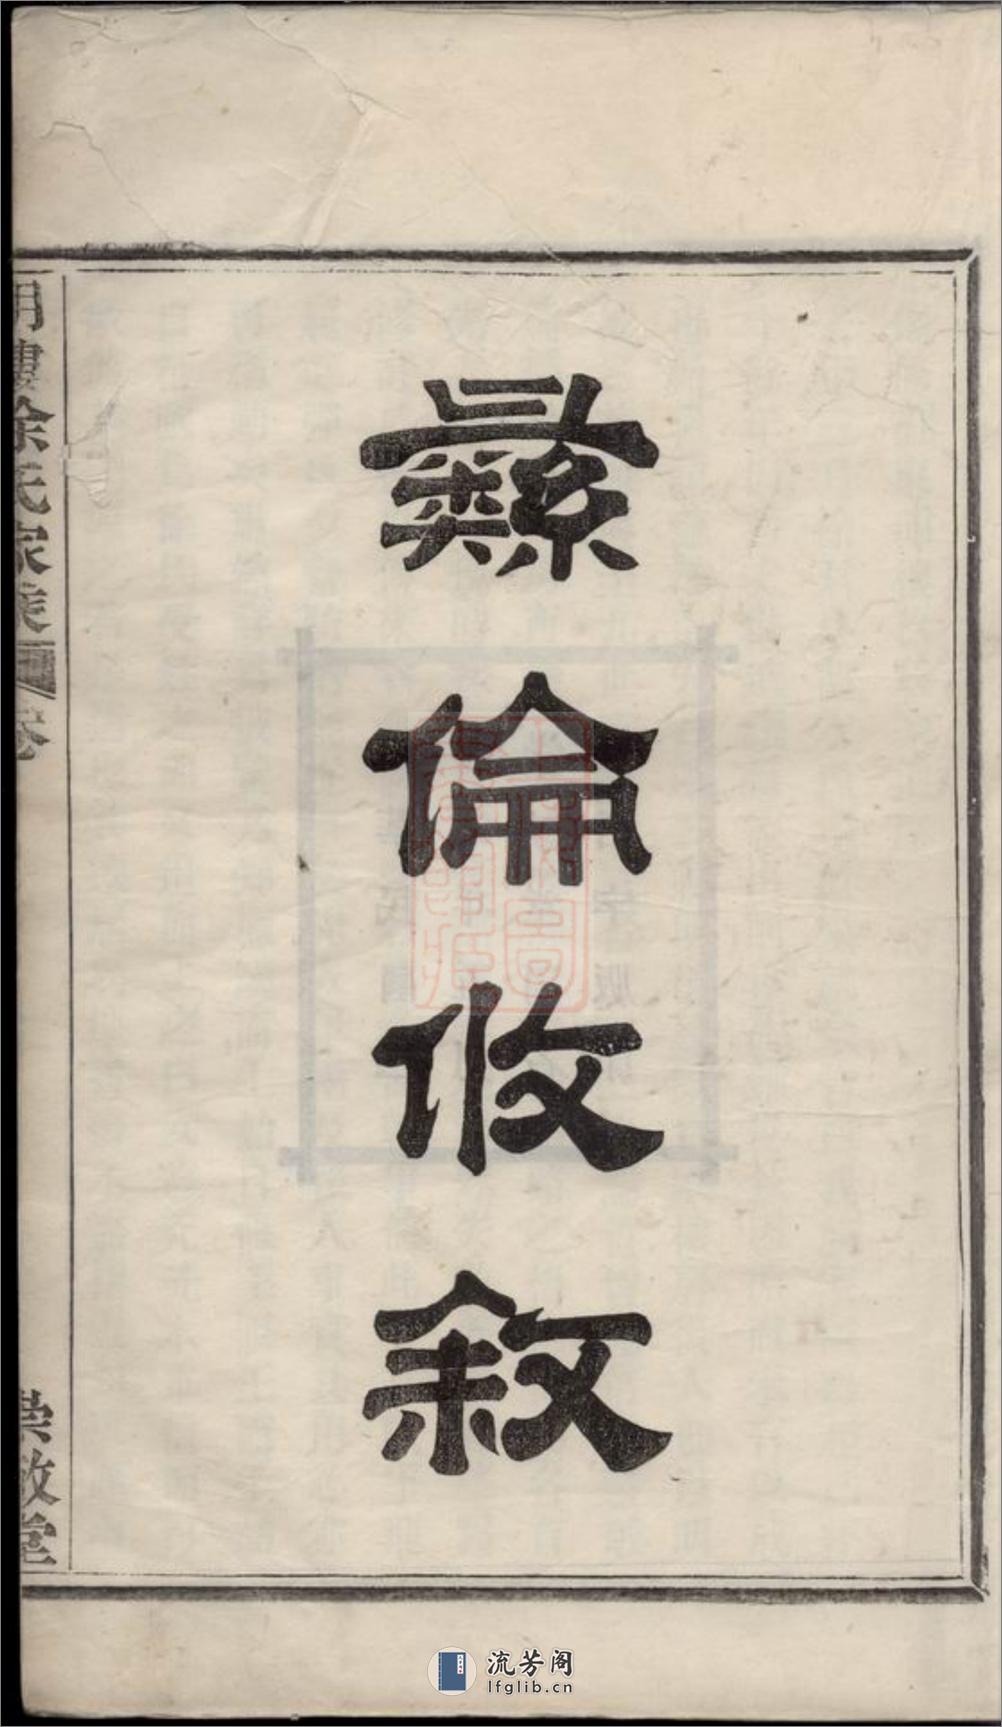 彝
倫
攸
敘
徐氏宗族
崇敬堂
流芳阁
lfglib.cn